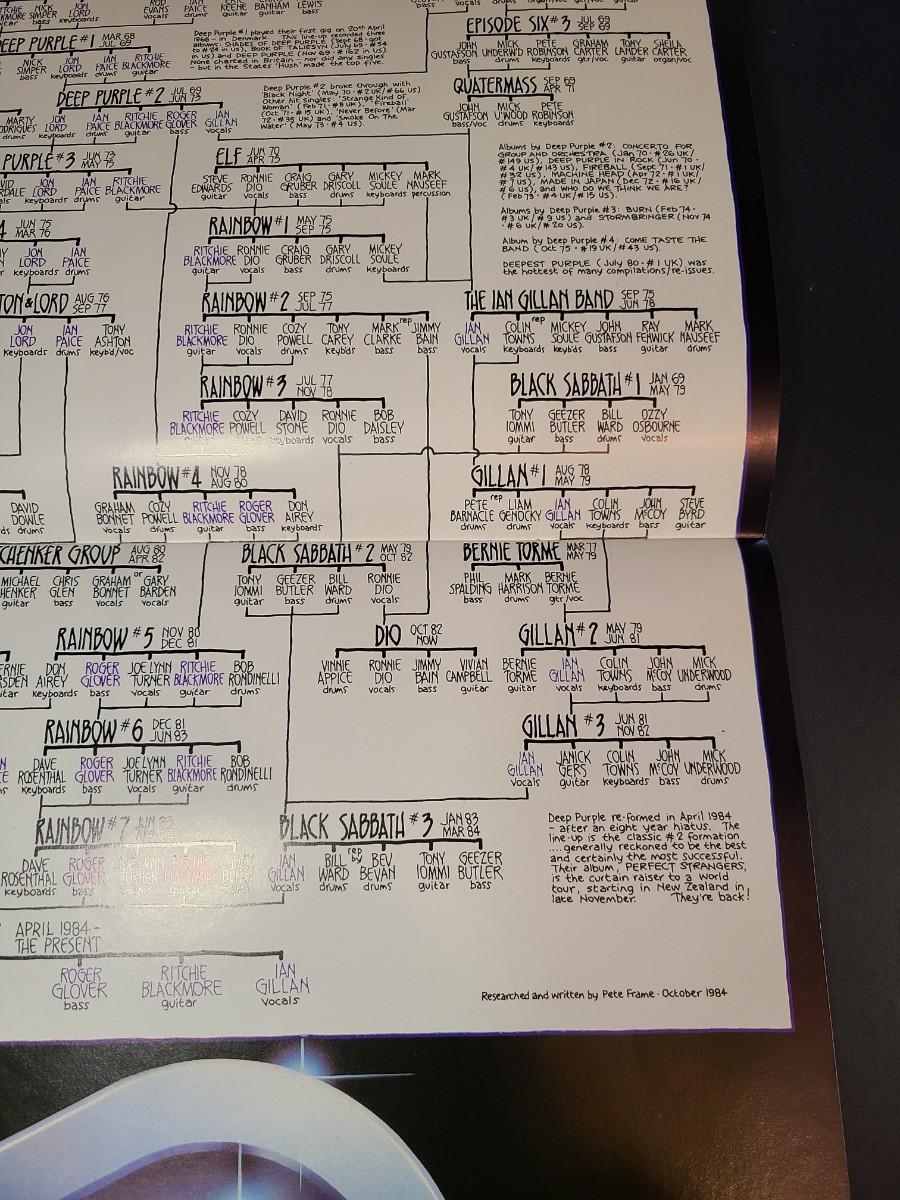 NICK SIMPER bass
ROD EVANS vocals
IAN PAICE drums
KEENE guitar
BANHAM keyboards
LEWIS bass
DEEP PURPLE #1 MAR 68 JUL 69
NICK SIMPER bass
JON LORD keyboards
IAN PAICE drums
RITCHIE BLACKMORE guitar
Deep Purple #1 played their first gig on 20th April
1968 – in Denmark. This line-up recorded three
albums: SHADES OF DEEP PURPLE (Sept 68 · got
to #24 in US), BOOK OF TALIESYN (July 69 · #54
in US) and DEEP PURPLE (Nov 69 · #162 in US)
None charted in Britain – nor did any singles
– but in the States 'Hush' made the top five.
EPISODE SIX #3 JUL 69 SEP 69
JOHN GUSTAFSON bass
MICK UNDERWD drums
PETE ROBINSON keyboards
GRAHAM CARTER gtr/voc
TONY LANDER guitar
SHEILA CARTER organ/voc
QUATERMASS SEP 69 APR 71
JOHN GUSTAFSON bass/voc
MICK U'WOOD drums
PETE ROBINSON keyboards
DEEP PURPLE #2 JUL 69 JUN 73
JON LORD keyboards
IAN PAICE drums
RITCHIE BLACKMORE guitar
ROGER GLOVER bass
IAN GILLAN vocals
MARTY drums
Deep Purple #2 broke through with
'Black Night' (May 70 · #2 UK/#66 US).
Other hit singles: 'Strange Kind of
Woman' (Feb 71 · #8 UK), 'Fireball'
(Oct 71 · #15 UK), 'Never Before' (Mar
72 · #35 UK) and 'Smoke On The
Water' (May 73 · #4 US).
PURPLE #3 JUN 73 MAY 75
JON LORD keyboards
IAN PAICE drums
RITCHIE BLACKMORE guitar
ELF JUN 70 APR 75
STEVE EDWARDS guitar
RONNIE DIO vocals
CRAIG GRUBER bass
GARY DRISCOLL drums
MICKEY SOULE keyboards
MARK NAUSEEF percussion
Albums by Deep Purple #2: CONCERTO FOR
GROUP AND ORCHESTRA (Jan 70 · #26 UK/
#149 US), DEEP PURPLE IN ROCK (Jun 70 ·
#4 UK/#143 US), FIREBALL (Sept 71 · #1 UK/
#32 US), MACHINE HEAD (Apr 72 · #1 UK/
#7 US), MADE IN JAPAN (Dec 72 · #16 UK/
#6 US), and WHO DO WE THINK WE ARE?
(Feb 73 · #4 UK/#15 US).
Albums by Deep Purple #3: BURN (Feb 74 ·
#3 UK/#9 US) and STORMBRINGER (Nov 74
· #6 UK/#20 US).
Album by Deep Purple #4: COME TASTE THE
BAND (Oct 75 · #19 UK/#43 US).
DEEPEST PURPLE (July 80 · #1 UK) was
the hottest of many compilations/re-issues.
4 JUN 75 MAR 76
JON LORD keyboards
IAN PAICE drums
RAINBOW #1 MAY 75 SEP 75
RITCHIE BLACKMORE guitar
RONNIE DIO vocals
CRAIG GRUBER bass
GARY DRISCOLL drums
MICKEY SOULE keyboards
TON & LORD AUG 76 SEP 77
JON LORD keyboards
IAN PAICE drums
TONY ASHTON keybd/voc
RAINBOW #2 SEP 75 JUL 77
RITCHIE BLACKMORE guitar
RONNIE DIO vocals
COZY POWELL drums
TONY CAREY keyb'ds
MARK CLARKE bass
rep JIMMY BAIN bass
THE IAN GILLAN BAND SEP 75 JUN 78
IAN GILLAN vocals
COLIN TOWNS keyboards
rep MICKEY SOULE keyb'ds
JOHN GUSTAFSON bass
RAY FENWICK guitar
MARK NAUSEEF drums
RAINBOW #3 JUL 77 NOV 78
RITCHIE BLACKMORE guitar
COZY POWELL drums
DAVID STONE keyboards
RONNIE DIO vocals
BOB DAISLEY bass
BLACK SABBATH #1 JAN 69 MAY 79
TONY IOMMI guitar
GEEZER BUTLER bass
BILL WARD drums
OZZY OSBOURNE vocals
DAVID DOWLE drums
RAINBOW #4 NOV 78 AUG 80
GRAHAM BONNET vocals
COZY POWELL drums
RITCHIE BLACKMORE guitar
ROGER GLOVER bass
DON AIREY keyboards
GILLAN #1 AUG 78 MAY 79
PETE BARNACLE drums
rep LIAM GENOCKY drums
IAN GILLAN vocals
COLIN TOWNS keyboards
JOHN McCOY bass
STEVE BYRD guitar
CHENKER GROUP AUG 80 APR 82
MICHAEL HENKER guitar
CHRIS GLEN bass
GRAHAM BONNET vocals
or GARY BARDEN vocals
BLACK SABBATH #2 MAY 79 OCT 82
TONY IOMMI guitar
GEEZER BUTLER bass
BILL WARD drums
RONNIE DIO vocals
BERNIE TORME MAR 77 MAY 79
PHIL SPALDING bass
MARK HARRISON drums
BERNIE TORME gtr/voc
RAINBOW #5 NOV 80 DEC 81
DON AIREY keyboards
ROGER GLOVER bass
JOE LYNN TURNER vocals
RITCHIE BLACKMORE guitar
BOB RONDINELLI drums
DIO OCT 82 NOW
VINNIE APPICE drums
RONNIE DIO vocals
JIMMY BAIN bass
VIVIAN CAMPBELL guitar
GILLAN #2 MAY 79 JUN 81
BERNIE TORME guitar
IAN GILLAN vocals
COLIN TOWNS keyboards
JOHN McCOY bass
MICK UNDERWOOD drums
RAINBOW #6 DEC 81 JUN 83
DAVE ROSENTHAL keyboards
ROGER GLOVER bass
JOE LYNN TURNER vocals
RITCHIE BLACKMORE guitar
BOB RONDINELLI drums
GILLAN #3 JUN 81 NOV 82
IAN GILLAN vocals
JANICK GERS guitar
COLIN TOWNS keyboards
JOHN McCOY bass
MICK UNDERWOOD drums
RAINBOW #7 JUN 83
DAVE ROSENTHAL keyboards
ROGER GLOVER bass
BLACK SABBATH #3 JAN 83 MAR 84
IAN GILLAN vocals
BILL WARD drums
rep by BEV BEVAN drums
TONY IOMMI guitar
GEEZER BUTLER bass
Deep Purple re-formed in April 1984
– after an eight year hiatus. The
line-up is the classic #2 formation
....generally reckoned to be the best
and certainly the most successful.
Their album, PERFECT STRANGERS,
is the curtain raiser to a world
tour, starting in New Zealand in
late November. They're back!
APRIL 1984 –
THE PRESENT
ROGER GLOVER bass
RITCHIE BLACKMORE guitar
IAN GILLAN vocals
Researched and written by Pete Frame · October 1984